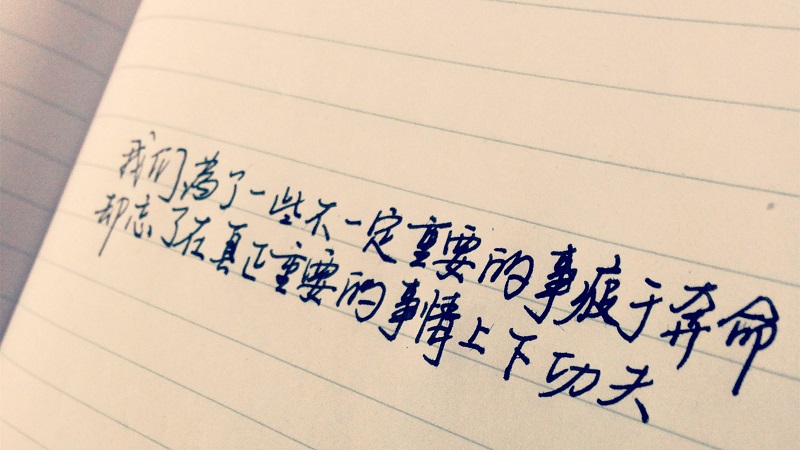 我们為了一些不一定重要的事疲于奔命
却忘了在真正重要的事情上下功夫